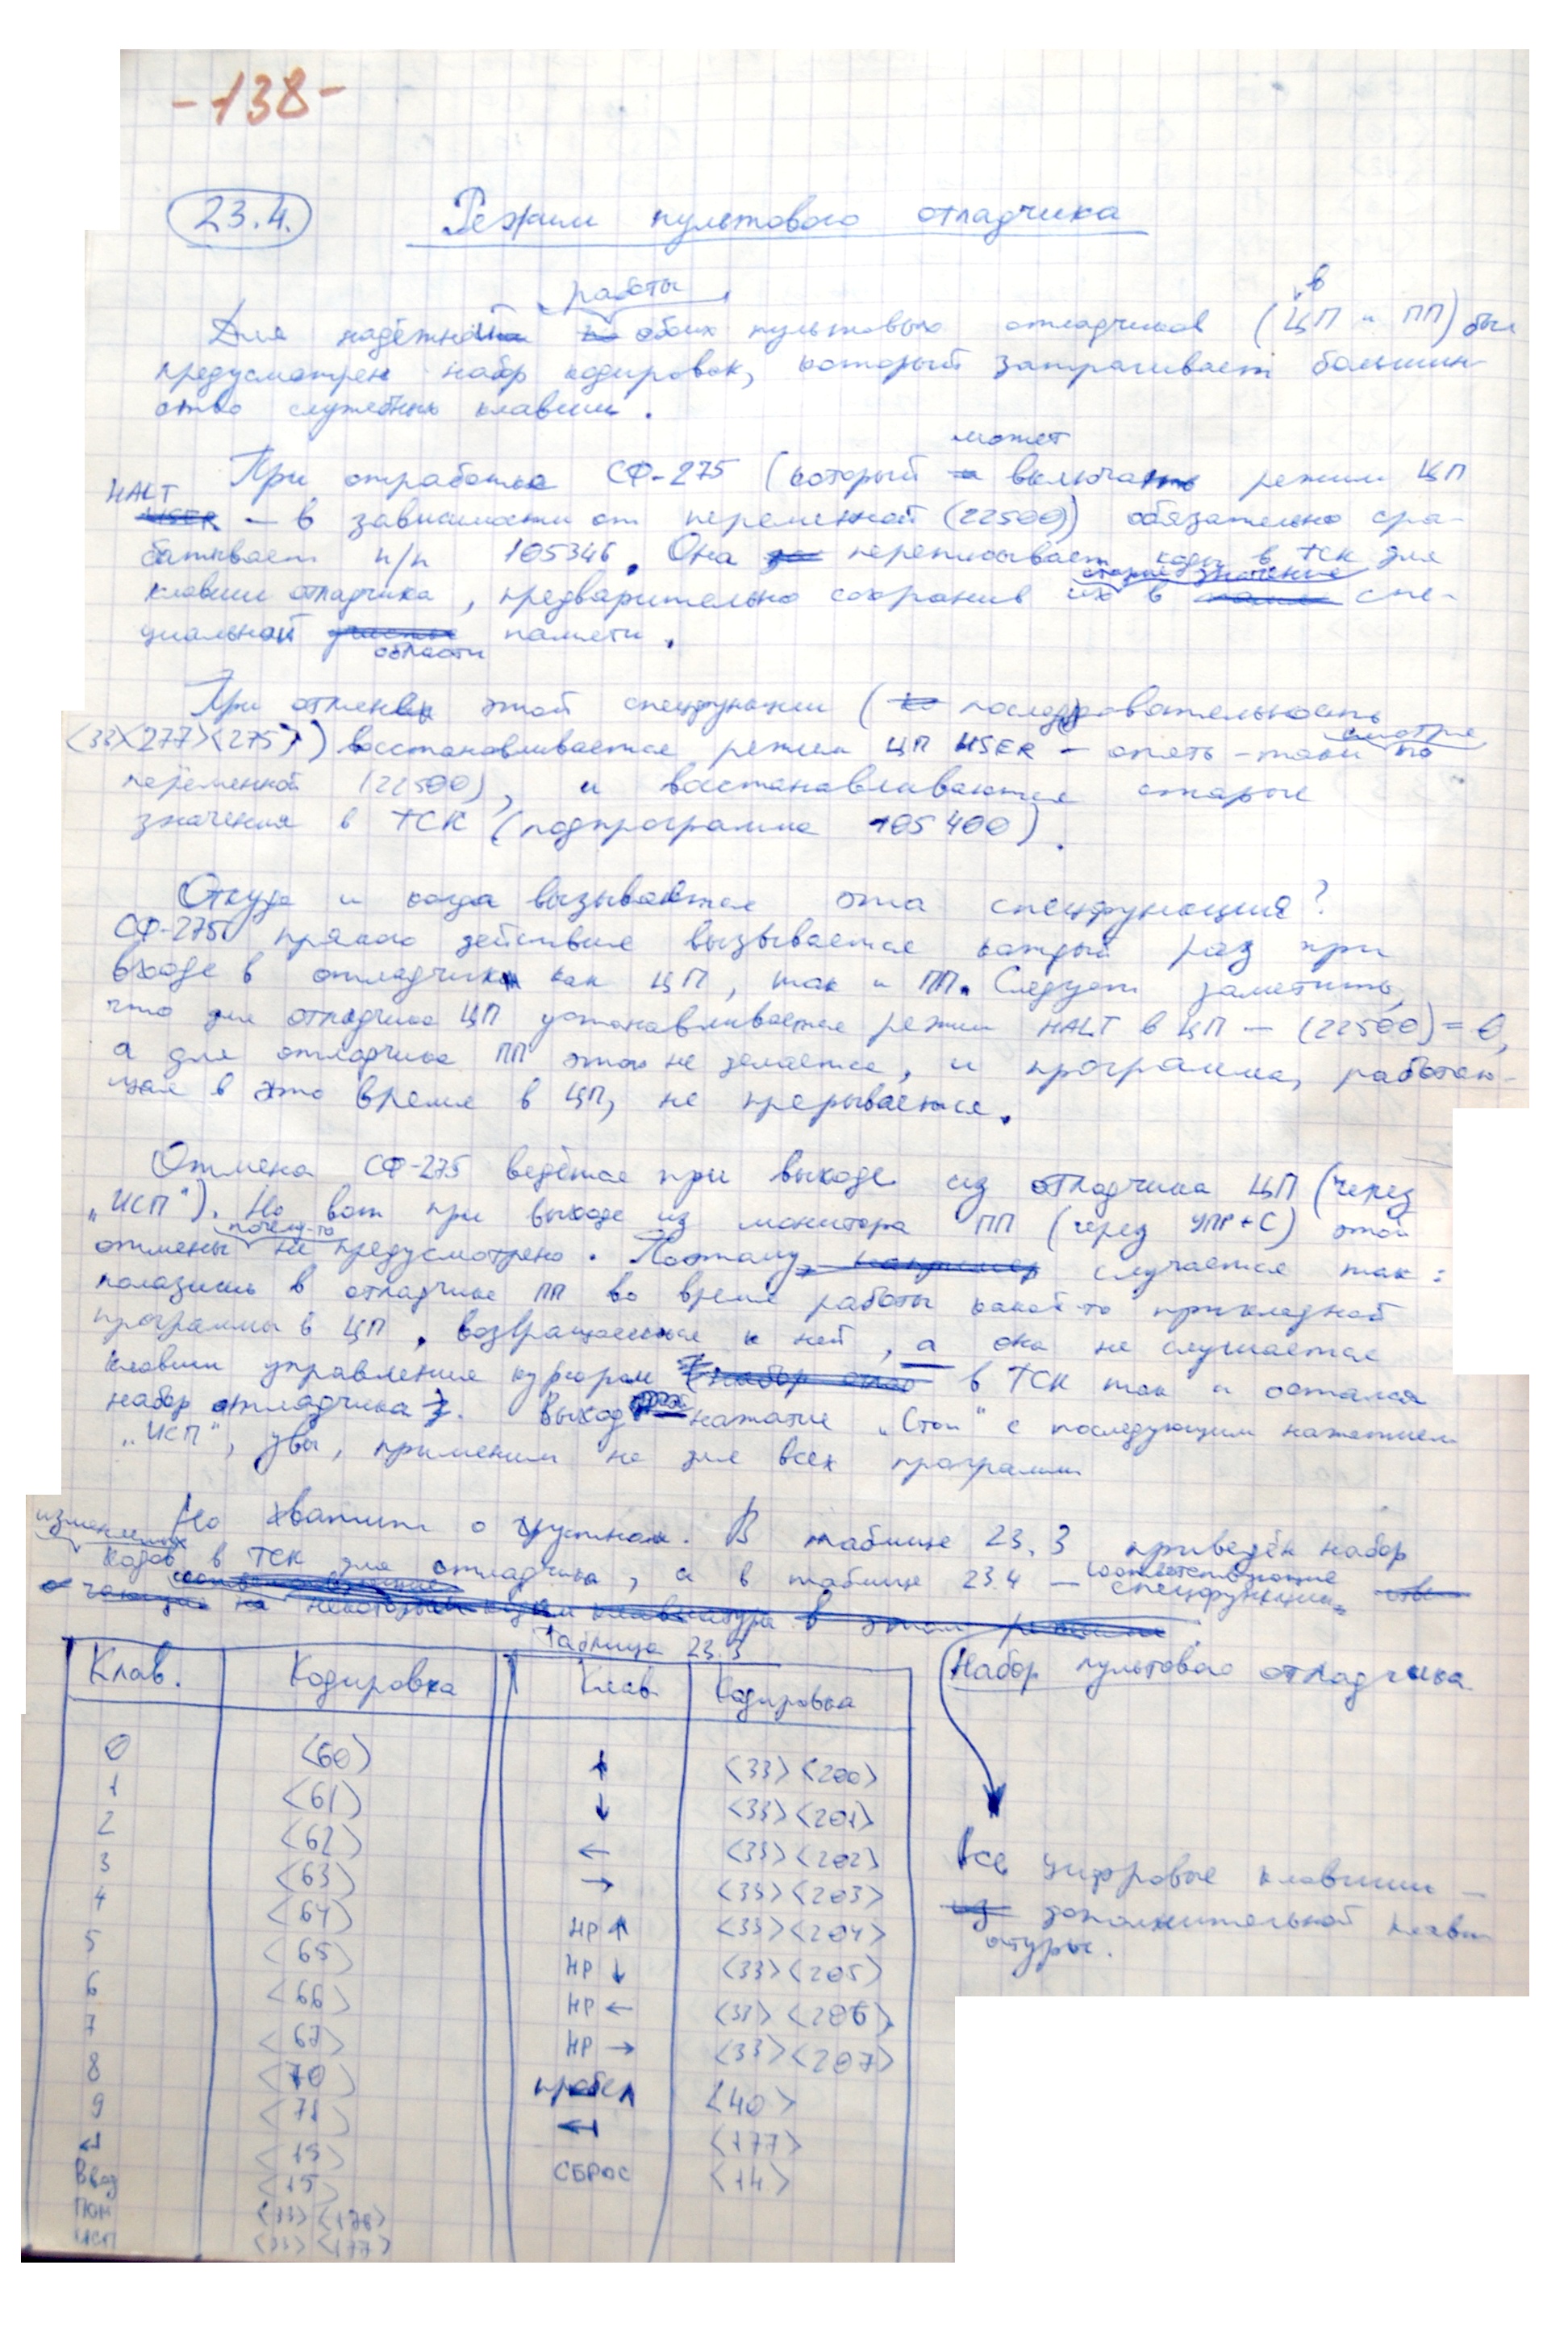 -138-
23.4. Режим пультового отладчика
работы в
Для надёжной обоих пультовых отладчиков (ЦП и ПП) был
предусмотрен набор кодировок, который затрагивает большин-
ство служебных клавиш.
может
При отработке СФ-275 (который включать режим ЦП
HALT
USER — в зависимости от переменной (22500)) обязательно сра-
батывает п/п 105346. Она переписывает коды в ТСК для
старые значения
клавиш отладчика, предварительно сохранив их в спе-
циальной памяти.
области
При отмене этой спецфункции (последовательность
<33><277><275>) восстанавливается режим ЦП USER — опять-таки смотря по
переменной (22500), и восстанавливаются старые
значения в ТСК (подпрограмма 105400).
Откуда и когда вызывается эта спецфункция?
СФ-275 прямого действия вызывается каждый раз при
входе в отладчик как ЦП, так и ПП. Следует заметить,
что для отладчика ЦП устанавливается режим HALT в ЦП — (22500)=0,
а для отладчика ПП этого не делается, и программа, работаю-
щая в это время в ЦП, не прерывается.
Отмена СФ-275 ведётся при выходе из отладчика ЦП (через
"ИСП"). Но вот при выходе из монитора ПП (через УПР+С) этой
почему-то
отмены не предусмотрено. Поэтому, например случается так:
полазишь в отладчике ПП во время работы какой-то прикладной
программы в ЦП, возвращаешься к ней, а она не слушается
клавиш управления курсором (набор в ТСК так и остался
набор отладчика). Выход нажатие "Стоп" с последующим нажатием
"ИСП", увы, применим не для всех программ
Но хватит о грустном. В таблице 23.3 приведён набор
изменённых
кодов в ТСК для отладчика, а в таблице 23.4 — соответствующие
спецфункции
чающие на некоторые клавиатура в этом режиме.
Таблица 23.3
Набор пультового отладчика
Клав. Кодировка Клав. Кодировка
0 <60> ↑ <33><200>
1 <61> ↓ <33><201>
2 <62> ← <33><202>
3 <63> → <33><203>
4 <64> НР ↑ <33><204>
5 <65> НР ↓ <33><205>
6 <66> НР ← <33><206>
7 <67> НР → <33><207>
8 <70> пробел <40>
9 <71> ← <177>
↵ <15> СБРОС <14>
Ввод <15>
ПОМ <33><176>
ИСП <33><177>
Все цифровые клавиши —
из дополнительной клави
атуры.